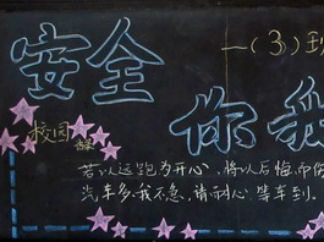 安全 一(3)班
你我
校园
若以逗跑为开心,将以后悔而
汽车多我不急,请耐心等车到.